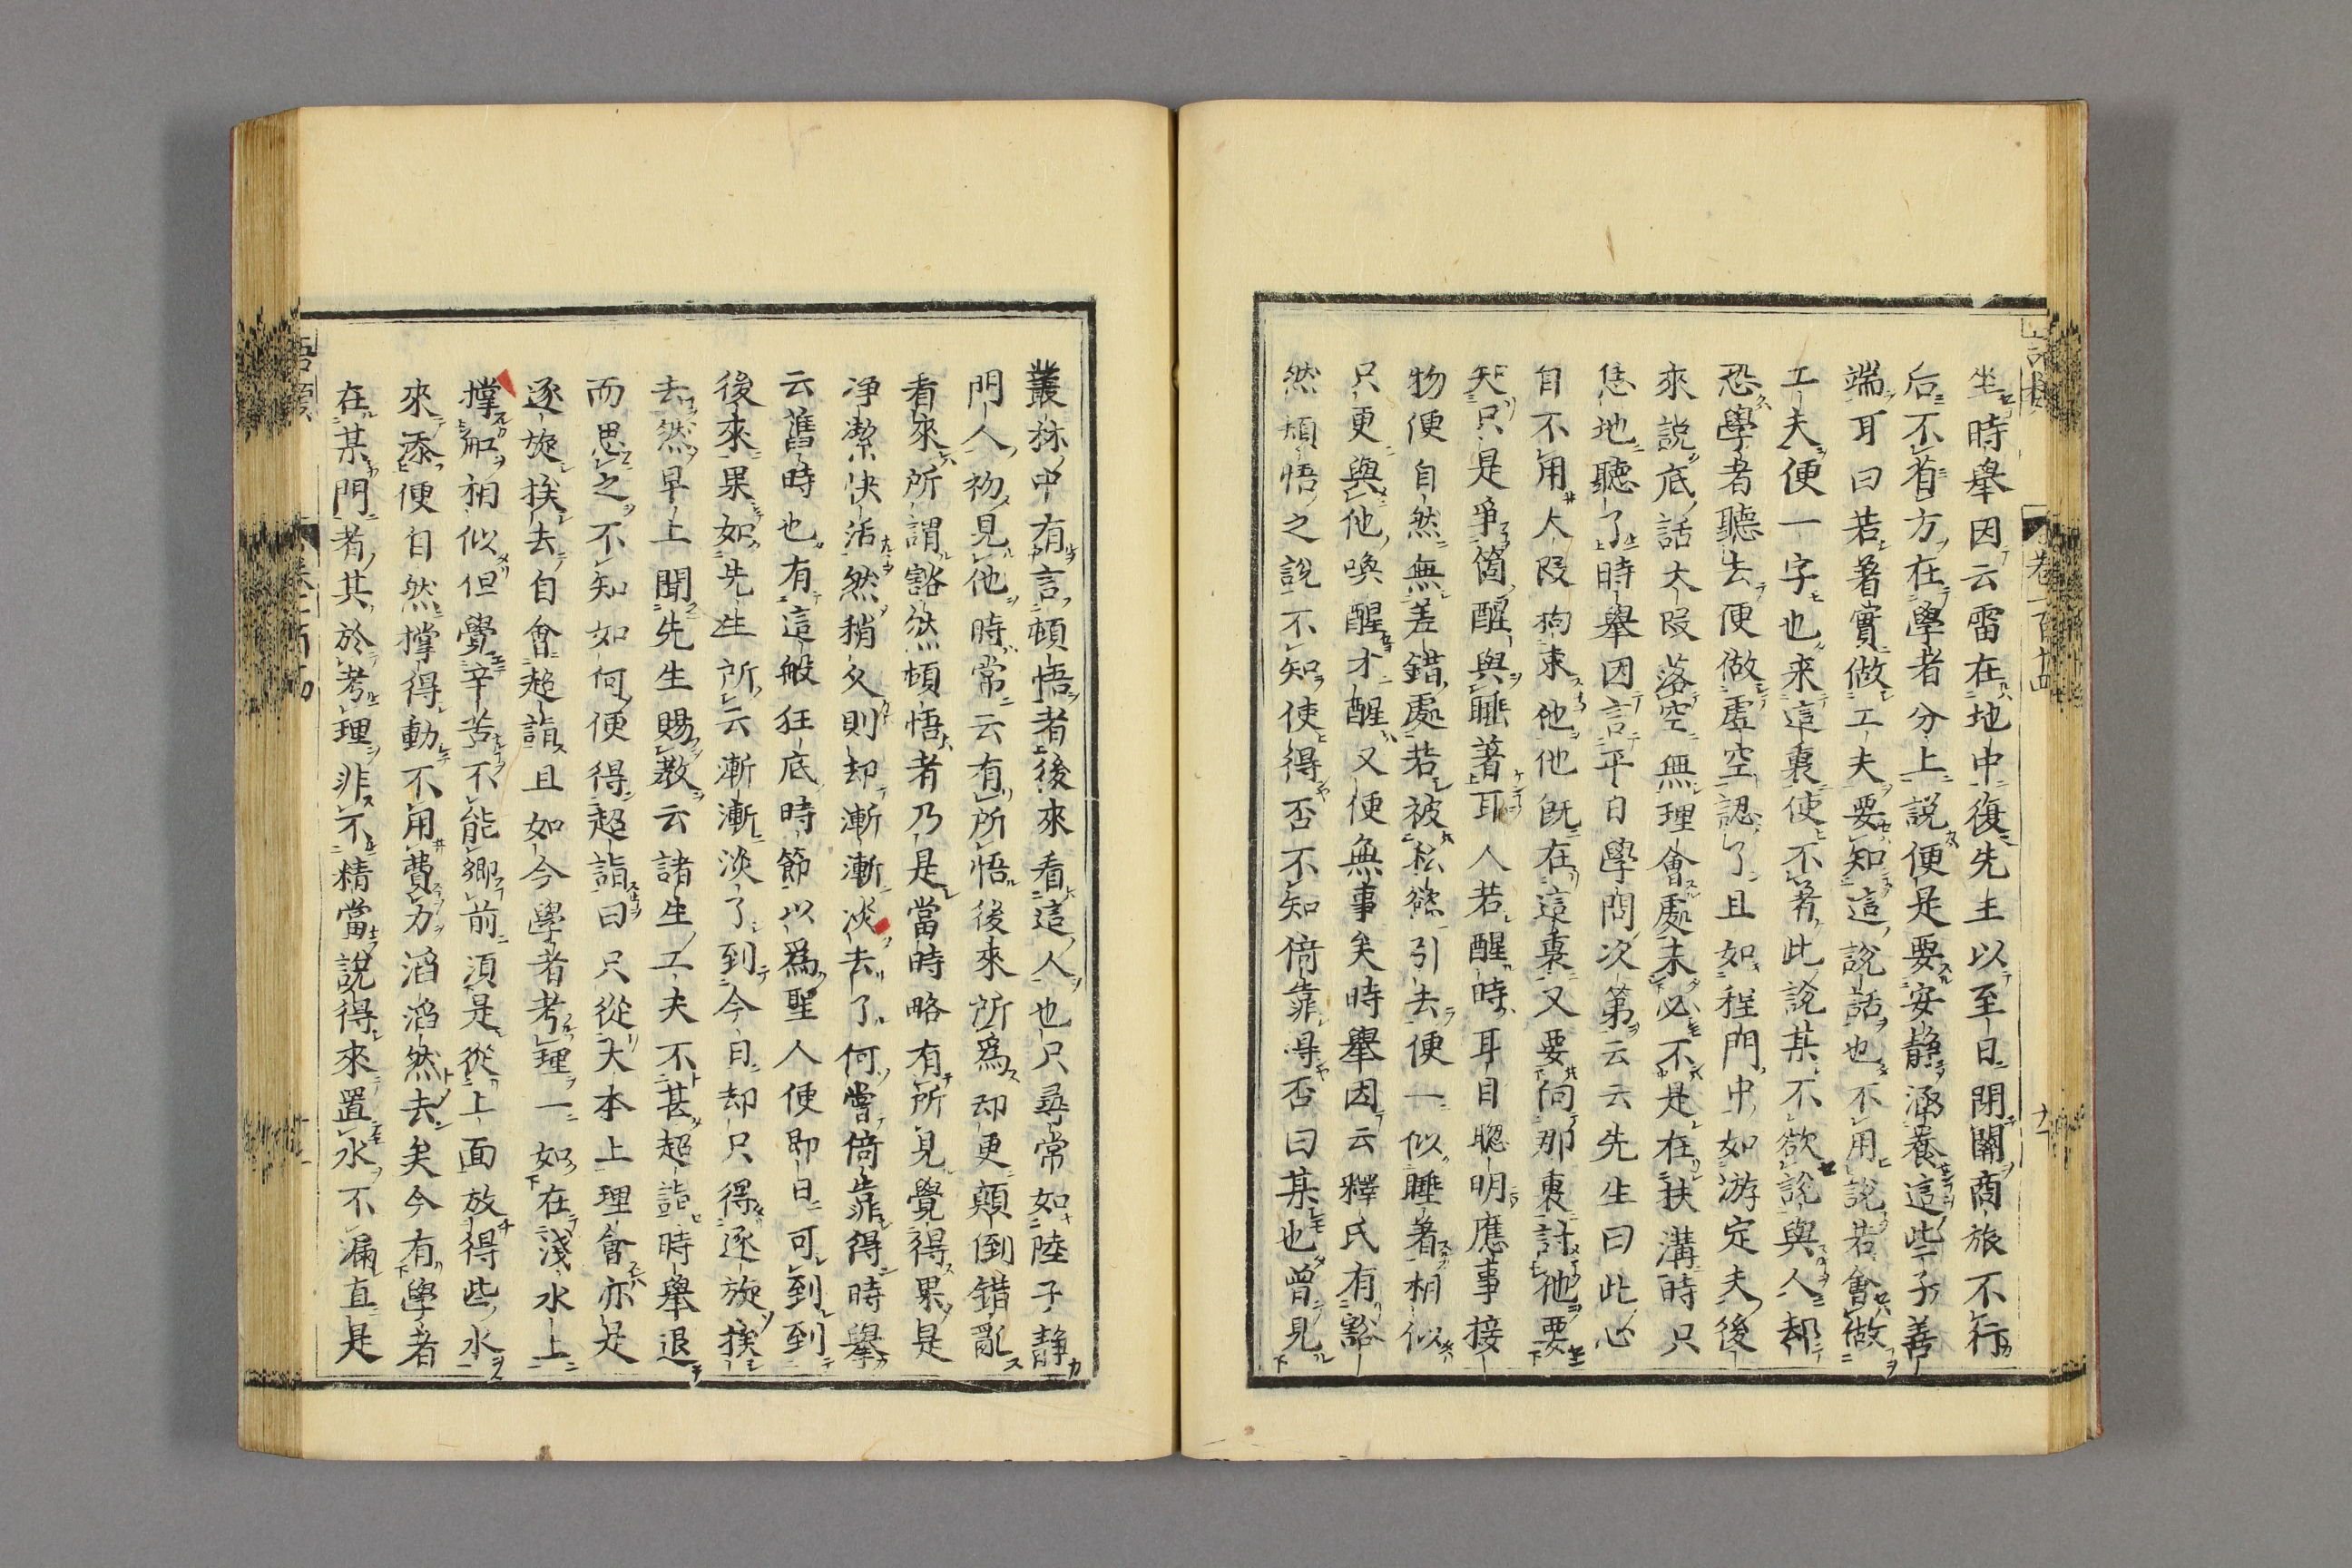 坐時舉因云雷在地中復先王以至日閉關商旅不行
后不省方在學者分上說便是要安靜涵養這些子善
端耳曰若著實做工夫要知這說話也不用說若會做
工夫便一字也来這裏使不著此說某不欲說與人却
恐學者聽去便做虛空認了且如程門中如游定夫後
來說底話大段落空無理會處未必不是在扶溝時只
恁地聽了時舉因言平日學問次第云云先生曰此心
自不用大段拘束他他既在這裏又要向那裏討他要
知只是爭箇醒與睡著耳人若醒時耳目聰明應事接
物便自然無差錯處若被私慾引去便一似睡著相似
只更與他喚醒才醒又便無事矣時舉因云釋氏有豁
然頓悟之說不知使得否不知倚靠得否曰某也曾見
叢林中有言頓悟者後來看這人也只尋常如陸子靜
門人初見他時常云有所悟後來所爲却更顛倒錯亂
看來所謂豁然頓悟者乃是當時略有所見覺得果是
净潔快活然稍久則却漸漸淡去了何嘗倚靠得時舉
云舊時也有這般狂底時節以爲聖人便即日可到到
後來果如先生所云漸漸淡了到今日却只得逐旋挨
去然早上聞先生賜教云諸生工夫不甚超詣時舉退
而思之不知如何便得超詣曰只從大本上理會亦是
逐旋挨去自會超詣且如今學者考理一如在淺水上
撑船相似但覺辛苦不能鄉前須是從上面放得些水
來添便自然撑得動不用費力滔滔然去矣今有學者
在某門者其於考理非不精當說得來置水不漏直是